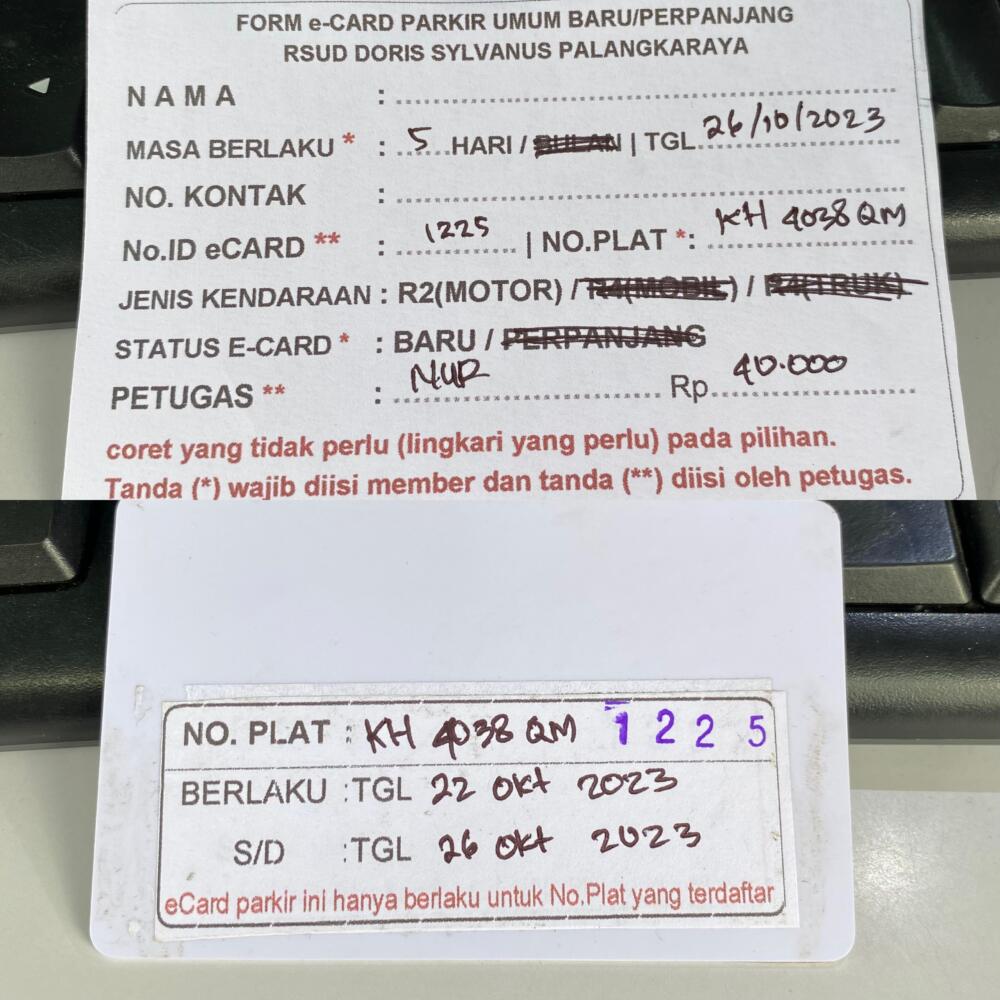 FORM e-CARD PARKIR UMUM BARU/PERPANJANG
RSUD DORIS SYLVANUS PALANGKARAYA
NAMA :
MASA BERLAKU * : 5 HARI / BULAN | TGL 26/10/2023
NO. KONTAK :
No.ID eCARD ** : 1225 | NO.PLAT *: KH 4038 QM
JENIS KENDARAAN : R2(MOTOR) / R4(MOBIL) / R4(TRUK)
STATUS E-CARD * : BARU / PERPANJANG
PETUGAS ** : NUR Rp. 40.000
coret yang tidak perlu (lingkari yang perlu) pada pilihan.
Tanda (*) wajib diisi member dan tanda (**) diisi oleh petugas.
NO. PLAT : KH 4038 QM 1225
BERLAKU : TGL 22 Okt 2023
S/D : TGL 26 Okt 2023
eCard parkir ini hanya berlaku untuk No.Plat yang terdaftar